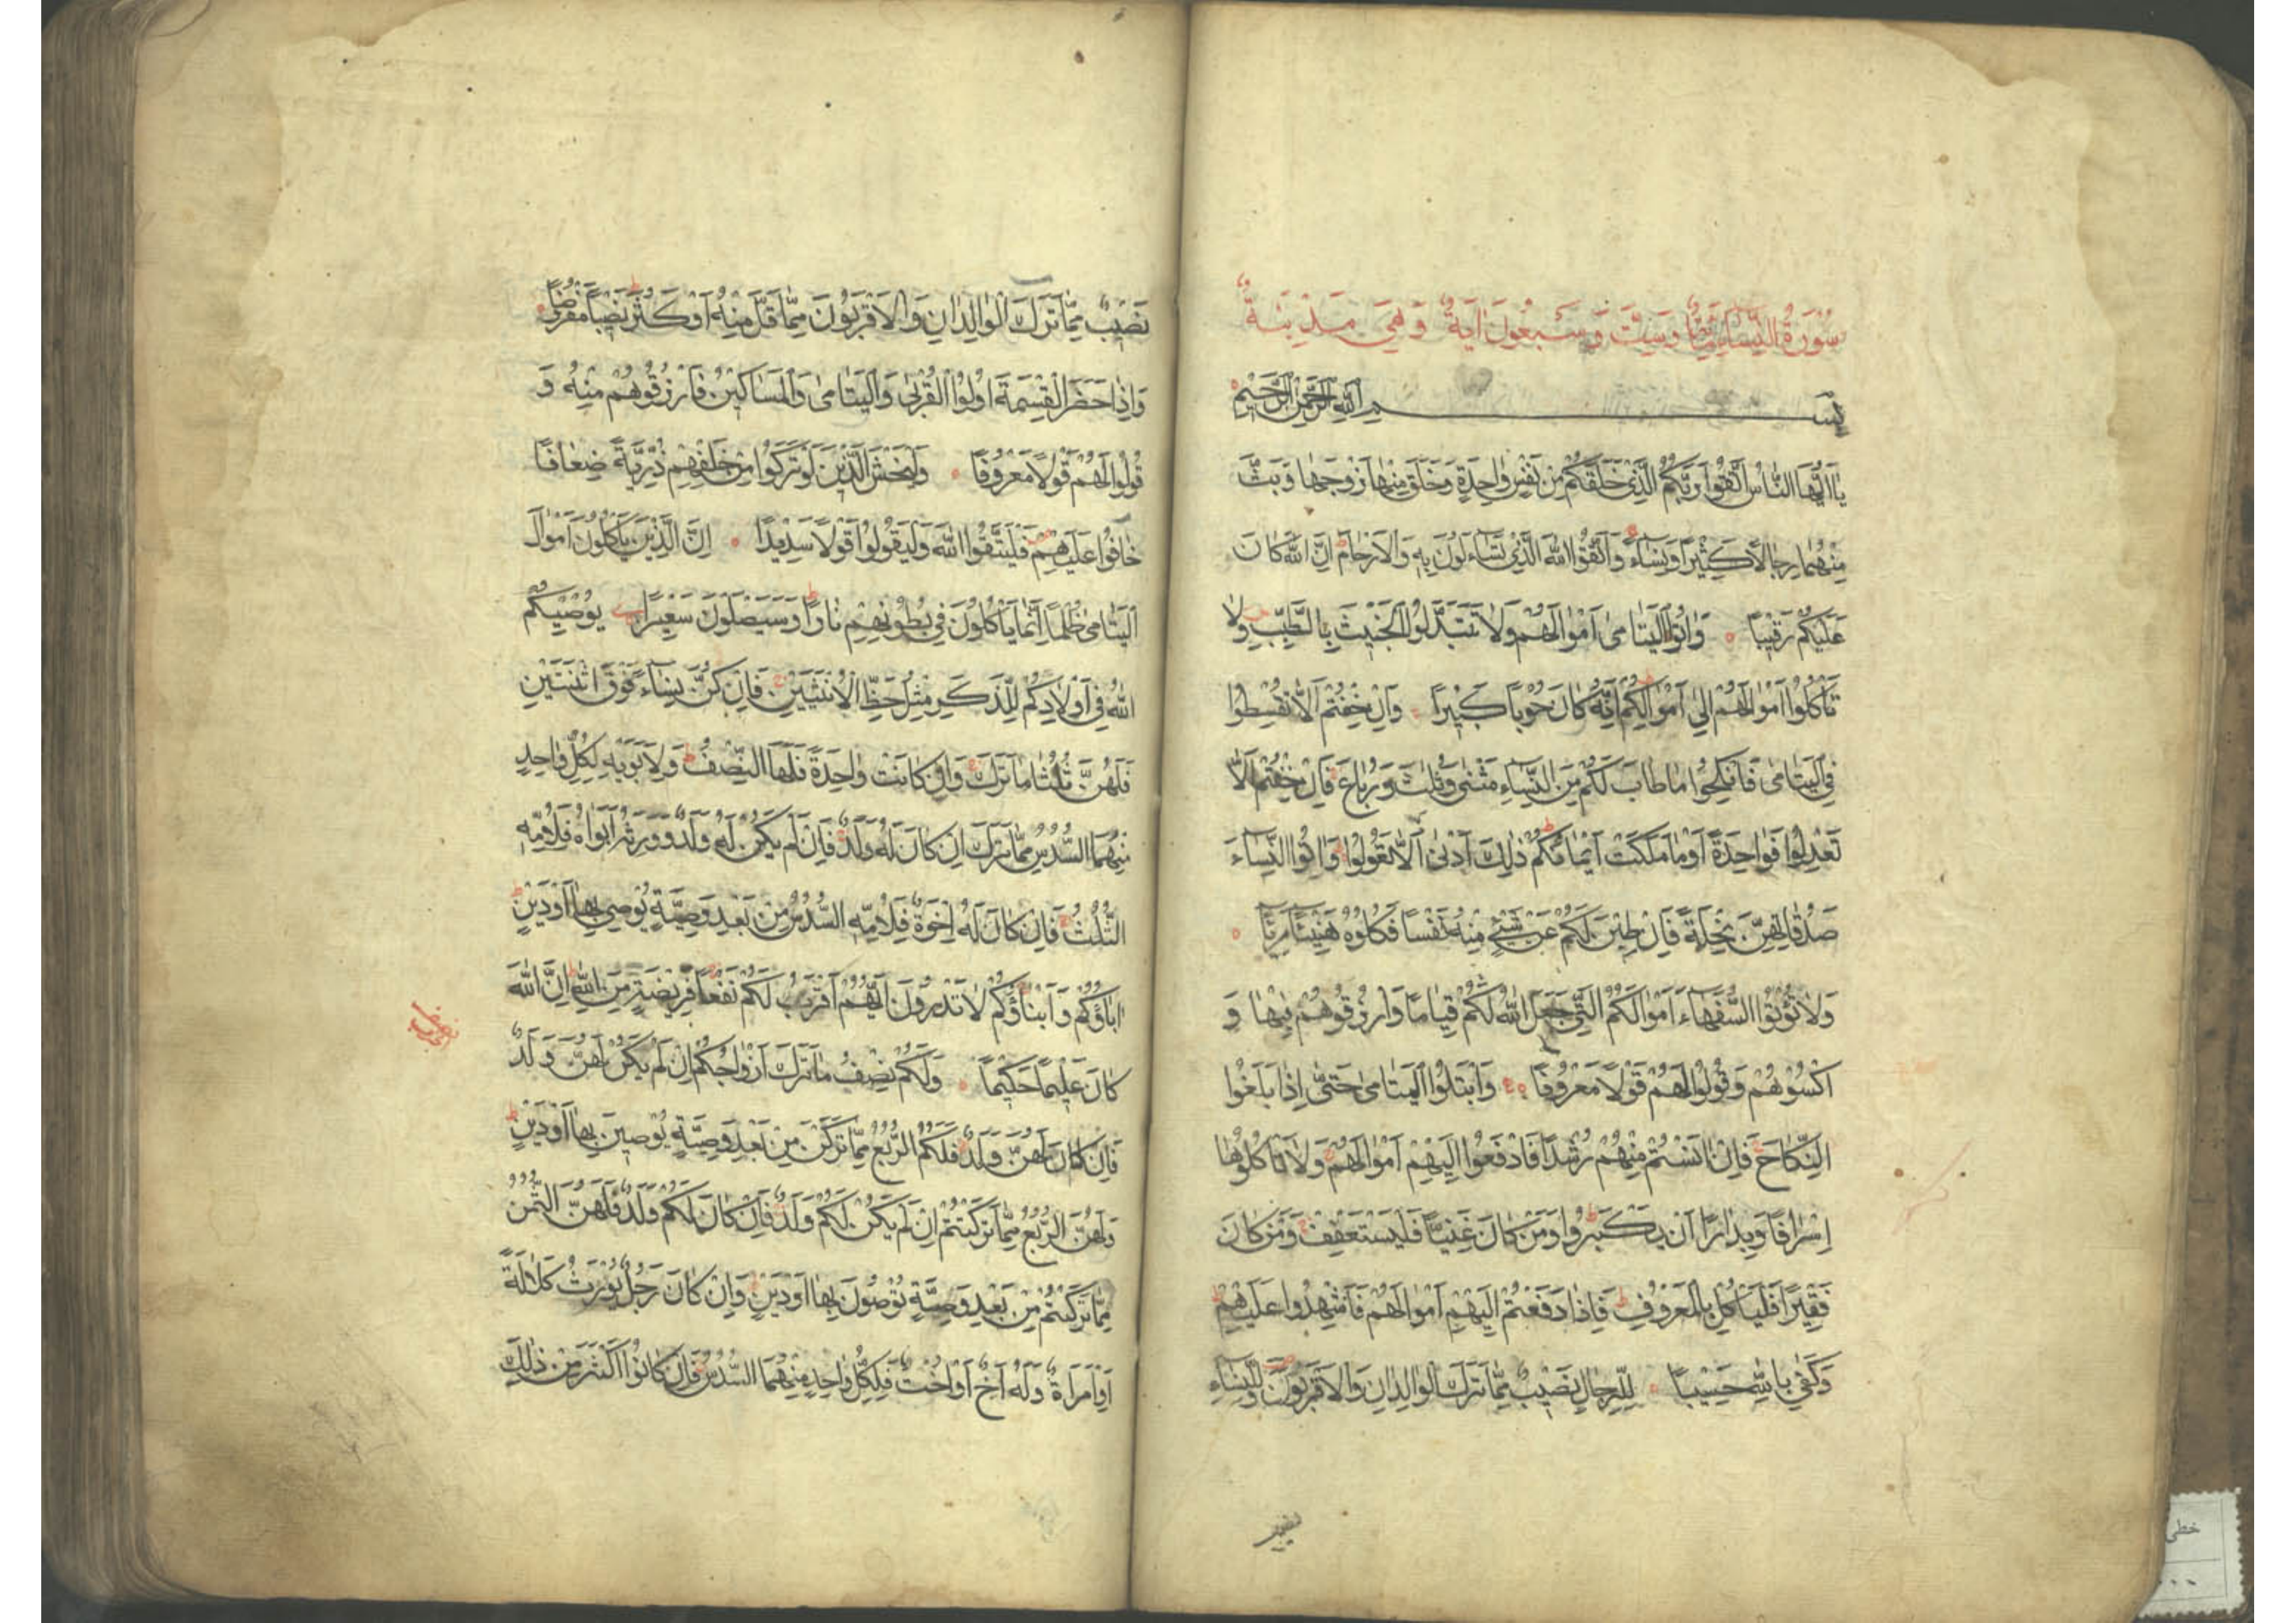 سُورَةُ النِّسَاءِ مِائَةٌ وَسِتٌّ وَسَبْعُونَ آيَةً وَهِيَ مَدَنِيَّةٌ
بِسْمِ اللّٰهِ الرَّحْمٰنِ الرَّحِيمِ
يَا اَيُّهَا النَّاسُ اتَّقُوا رَبَّكُمُ الَّذِي خَلَقَكُمْ مِنْ نَفْسٍ وَاحِدَةٍ وَخَلَقَ مِنْهَا زَوْجَهَا وَبَثَّ
مِنْهُمَا رِجَالًا كَثِيرًا وَنِسَاءً وَاتَّقُوا اللّٰهَ الَّذِي تَسَاءَلُونَ بِهِ وَالْاَرْحَامَ اِنَّ اللّٰهَ كَانَ
عَلَيْكُمْ رَقِيبًا وَاٰتُوا الْيَتَامٰى اَمْوَالَهُمْ وَلَا تَتَبَدَّلُوا الْخَبِيثَ بِالطَّيِّبِ وَلَا
تَأْكُلُوا اَمْوَالَهُمْ اِلٰى اَمْوَالِكُمْ اِنَّهُ كَانَ حُوبًا كَبِيرًا وَاِنْ خِفْتُمْ اَلَّا تُقْسِطُوا
فِي الْيَتَامٰى فَانْكِحُوا مَا طَابَ لَكُمْ مِنَ النِّسَاءِ مَثْنٰى وَثُلَثَ وَرُبَاعَ فَاِنْ خِفْتُمْ اَلَّا
تَعْدِلُوا فَوَاحِدَةً اَوْ مَا مَلَكَتْ اَيْمَانُكُمْ ذٰلِكَ اَدْنٰى اَلَّا تَعُولُوا وَاٰتُوا النِّسَاءَ
صَدُقَاتِهِنَّ نِحْلَةً فَاِنْ طِبْنَ لَكُمْ عَنْ شَيْءٍ مِنْهُ نَفْسًا فَكُلُوهُ هَنِيئًا مَرِيئًا
وَلَا تُؤْتُوا السُّفَهَاءَ اَمْوَالَكُمُ الَّتِي جَعَلَ اللّٰهُ لَكُمْ قِيَامًا وَارْزُقُوهُمْ فِيهَا وَ
اكْسُوهُمْ وَقُولُوا لَهُمْ قَوْلًا مَعْرُوفًا وَابْتَلُوا الْيَتَامٰى حَتّٰى اِذَا بَلَغُوا
النِّكَاحَ فَاِنْ اٰنَسْتُمْ مِنْهُمْ رُشْدًا فَادْفَعُوا اِلَيْهِمْ اَمْوَالَهُمْ وَلَا تَأْكُلُوهَا
اِسْرَافًا وَبِدَارًا اَنْ يَكْبَرُوا وَمَنْ كَانَ غَنِيًّا فَلْيَسْتَعْفِفْ وَمَنْ كَانَ
فَقِيرًا فَلْيَأْكُلْ بِالْمَعْرُوفِ فَاِذَا دَفَعْتُمْ اِلَيْهِمْ اَمْوَالَهُمْ فَاَشْهِدُوا عَلَيْهِمْ
وَكَفٰى بِاللّٰهِ حَسِيبًا لِلرِّجَالِ نَصِيبٌ مِمَّا تَرَكَ الْوَالِدَانِ وَالْاَقْرَبُونَ وَلِلنِّسَاءِ
نَصِيبٌ
نَصِيبٌ مِمَّا تَرَكَ الْوَالِدَانِ وَالْاَقْرَبُونَ مِمَّا قَلَّ مِنْهُ اَوْ كَثُرَ نَصِيبًا مَفْرُوضًا
وَاِذَا حَضَرَ الْقِسْمَةَ اُولُوا الْقُرْبٰى وَالْيَتَامٰى وَالْمَسَاكِينُ فَارْزُقُوهُمْ مِنْهُ وَ
قُولُوا لَهُمْ قَوْلًا مَعْرُوفًا وَلْيَخْشَ الَّذِينَ لَوْ تَرَكُوا مِنْ خَلْفِهِمْ ذُرِّيَّةً ضِعَافًا
خَافُوا عَلَيْهِمْ فَلْيَتَّقُوا اللّٰهَ وَلْيَقُولُوا قَوْلًا سَدِيدًا اِنَّ الَّذِينَ يَأْكُلُونَ اَمْوَالَ
الْيَتَامٰى ظُلْمًا اِنَّمَا يَأْكُلُونَ فِي بُطُونِهِمْ نَارًا وَسَيَصْلَوْنَ سَعِيرًا يُوصِيكُمُ
اللّٰهُ فِي اَوْلَادِكُمْ لِلذَّكَرِ مِثْلُ حَظِّ الْاُنْثَيَيْنِ فَاِنْ كُنَّ نِسَاءً فَوْقَ اثْنَتَيْنِ
فَلَهُنَّ ثُلُثَا مَا تَرَكَ وَاِنْ كَانَتْ وَاحِدَةً فَلَهَا النِّصْفُ وَلِاَبَوَيْهِ لِكُلِّ وَاحِدٍ
مِنْهُمَا السُّدُسُ مِمَّا تَرَكَ اِنْ كَانَ لَهُ وَلَدٌ فَاِنْ لَمْ يَكُنْ لَهُ وَلَدٌ وَوَرِثَهُ اَبَوَاهُ فَلِاُمِّهِ
الثُّلُثُ فَاِنْ كَانَ لَهُ اِخْوَةٌ فَلِاُمِّهِ السُّدُسُ مِنْ بَعْدِ وَصِيَّةٍ يُوصِي بِهَا اَوْ دَيْنٍ
اٰبَاؤُكُمْ وَاَبْنَاؤُكُمْ لَا تَدْرُونَ اَيُّهُمْ اَقْرَبُ لَكُمْ نَفْعًا فَرِيضَةً مِنَ اللّٰهِ اِنَّ اللّٰهَ
كَانَ عَلِيمًا حَكِيمًا وَلَكُمْ نِصْفُ مَا تَرَكَ اَزْوَاجُكُمْ اِنْ لَمْ يَكُنْ لَهُنَّ وَلَدٌ
فَاِنْ كَانَ لَهُنَّ وَلَدٌ فَلَكُمُ الرُّبُعُ مِمَّا تَرَكْنَ مِنْ بَعْدِ وَصِيَّةٍ يُوصِينَ بِهَا اَوْ دَيْنٍ
وَلَهُنَّ الرُّبُعُ مِمَّا تَرَكْتُمْ اِنْ لَمْ يَكُنْ لَكُمْ وَلَدٌ فَاِنْ كَانَ لَكُمْ وَلَدٌ فَلَهُنَّ الثُّمُنُ
مِمَّا تَرَكْتُمْ مِنْ بَعْدِ وَصِيَّةٍ تُوصُونَ بِهَا اَوْ دَيْنٍ وَاِنْ كَانَ رَجُلٌ يُورَثُ كَلَالَةً
اَوِ امْرَاَةٌ وَلَهُ اَخٌ اَوْ اُخْتٌ فَلِكُلِّ وَاحِدٍ مِنْهُمَا السُّدُسُ فَاِنْ كَانُوا اَكْثَرَ مِنْ ذٰلِكَ
خطی